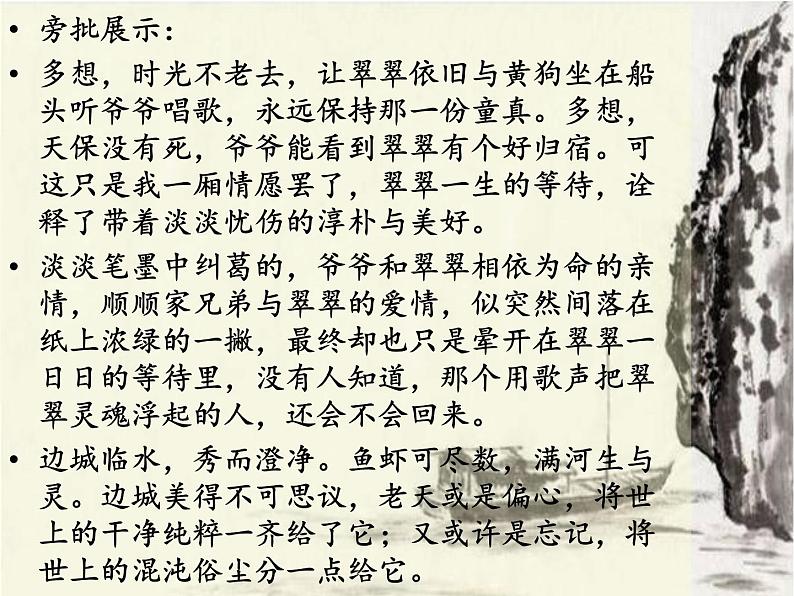 • 旁批展示：
• 多想，时光不老去，让翠翠依旧与黄狗坐在船
头听爷爷唱歌，永远保持那一份童真。多想，
天保没有死，爷爷能看到翠翠有个好归宿。可
这只是我一厢情愿罢了，翠翠一生的等待，诠
释了带着淡淡忧伤的淳朴与美好。
• 淡淡笔墨中纠葛的，爷爷和翠翠相依为命的亲
情，顺顺家兄弟与翠翠的爱情，似突然间落在
纸上浓绿的一撇，最终却也只是晕开在翠翠一
日日的等待里，没有人知道，那个用歌声把翠
翠灵魂浮起的人，还会不会回来。
• 边城临水，秀而澄净。鱼虾可尽数，满河生与
灵。边城美得不可思议，老天或是偏心，将世
上的干净纯粹一齐给了它；又或许是忘记，将
世上的混沌俗尘分一点给它。